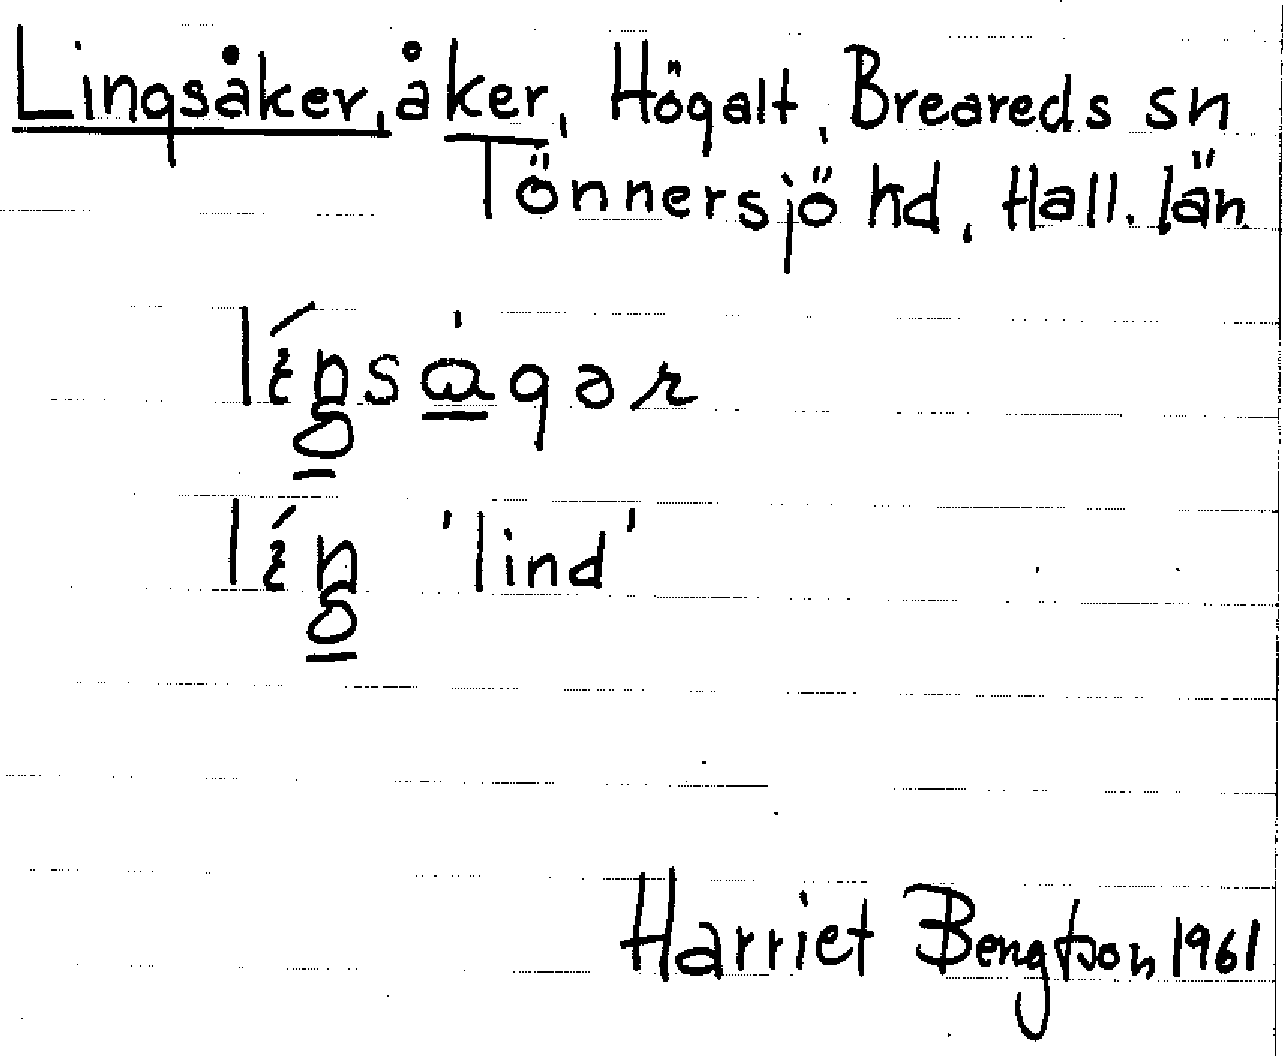 Lingsåker, åker, Högalt, Breareds sn
Tönnersjö hd, Hall. län
'lind'
Harriet Bengtson 1961